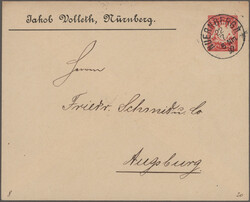 Jakob Volleth, Nürnberg.
NUERNBERG
Herrn
Friedr. Schmid u. Co
Augsburg